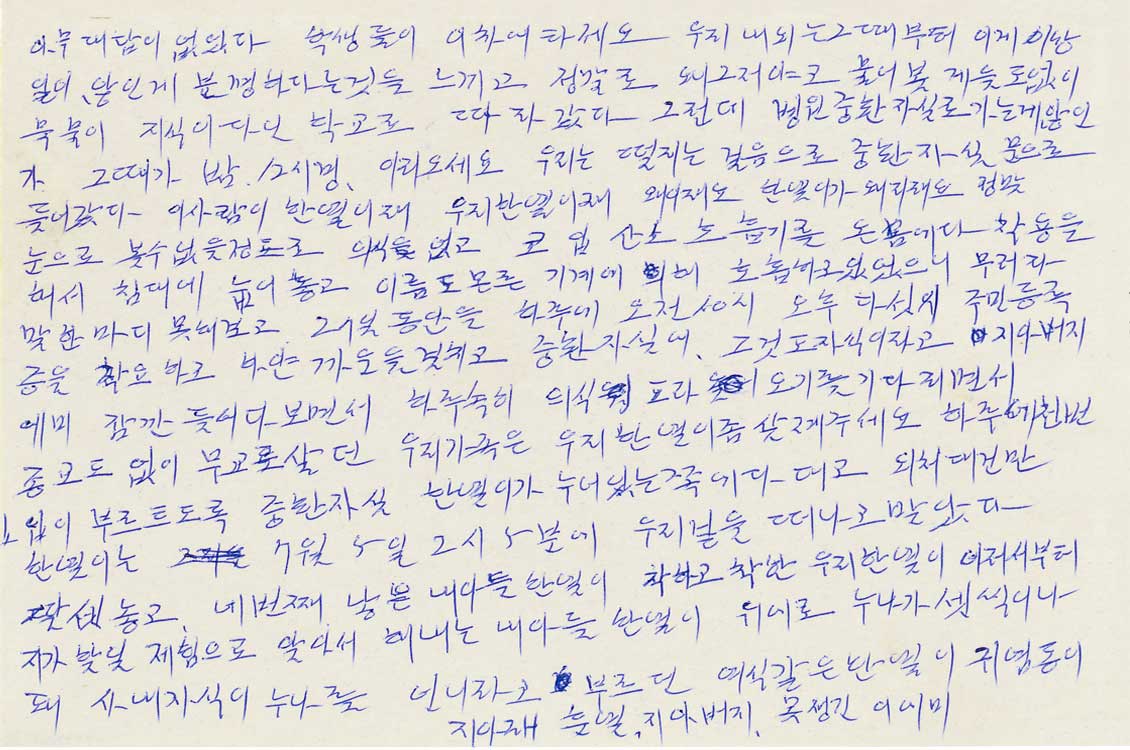 아무 대답이 없었다 학생들이 이차에 타제요 우리 내외는 그때부터 이게 이만
일이 않인게 분명하다는 것을 느끼고 정말로 왜그저야고 물어볼 계를도 없이
묵묵이 지식이다인 학고로 따라 갔다 그런데 병원 중환자실로 가는게 않인
가 그때가 밤 12시경, 이리오세요 우리는 떨지는 걸음으로 중환자실 문으로
들어갔다 이사람이 한열이재 우리한열이재 왜이재요 한열이가 왜리래요 정말
눈으로 볼수없을정도로 의식을 없고 코 입 산소 노흡기를 온몸에다 착용을
해서 침대에 눕어 놓고 이름도 모른 기계에 의해 호흡하고 있었으니 무러라
말한마디 못해보고 21일 동안을 하루에 오전 10시 오후 다섯시 주민등록
증을 착요하고 하얀 까운을 걸치고 중환자실에, 그것도 자식이자고 지아버지
에미 잠간 들여다 보면서 하루속히 의식 도라 오기를 기다리면서
종교도 없이 무교로 살던 우리가족은 우리한열이좀 살려주세요 하루에 천번
입이 부르트도록 중환자실 한열이가 누너있는 쪽에다 대고 외처대건만
한열이는 7월 5일 2시 5분에 우리걸을 떠나고 말았다
딸 셋 놓고, 네번째 낳은 내아들 한열이 착하고 착한 우리한열이 어려서부터
지가 할일 제힘으로 알아서 해내는 내아들 한열이 위에로 누나가 셋씩이나
돼 사내자식이 누나를 언니라고 부르던 여식같은 한열이 귀염둥이
지아래 훈열, 지아버지, 못생긴 이에미